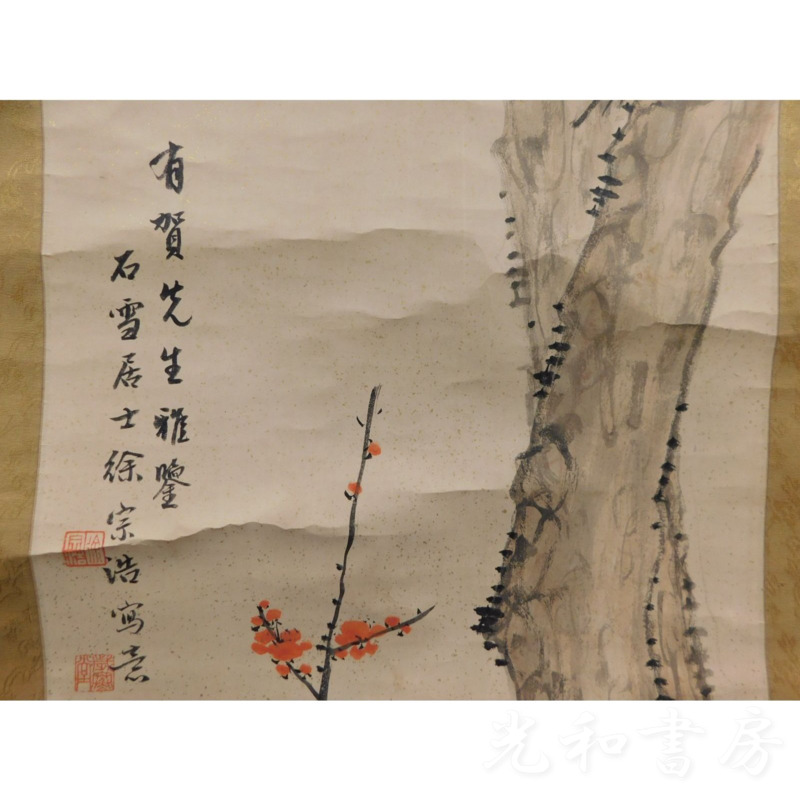 有賀先生雅鑒
石雪居士徐宗浩寫意
光和書房